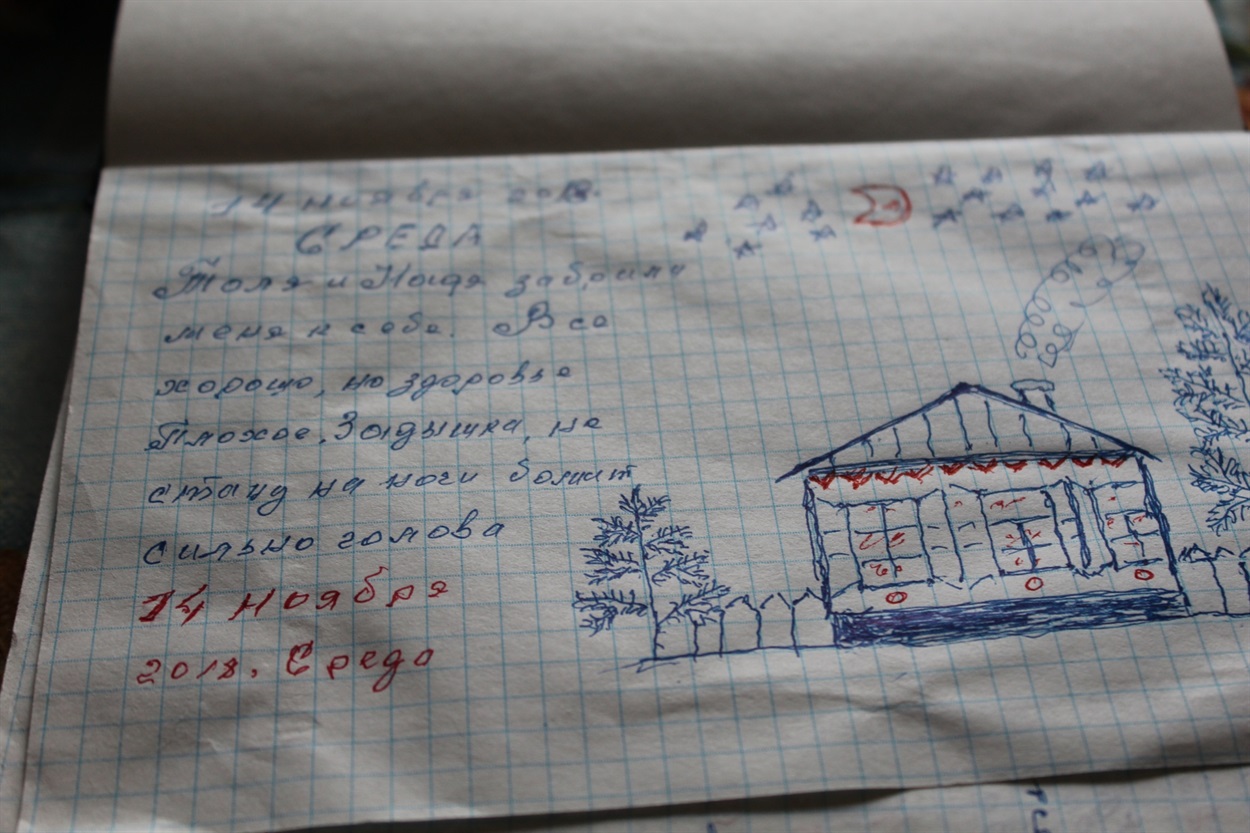 14 ноября 2018.
СРЕДА
Толя и Надя забрали
меня к себе. Все
хорошо, но здоровье
Плохое. Задышка, не
стану на ноги болит
сильно голова
14 ноября
2018. Среда